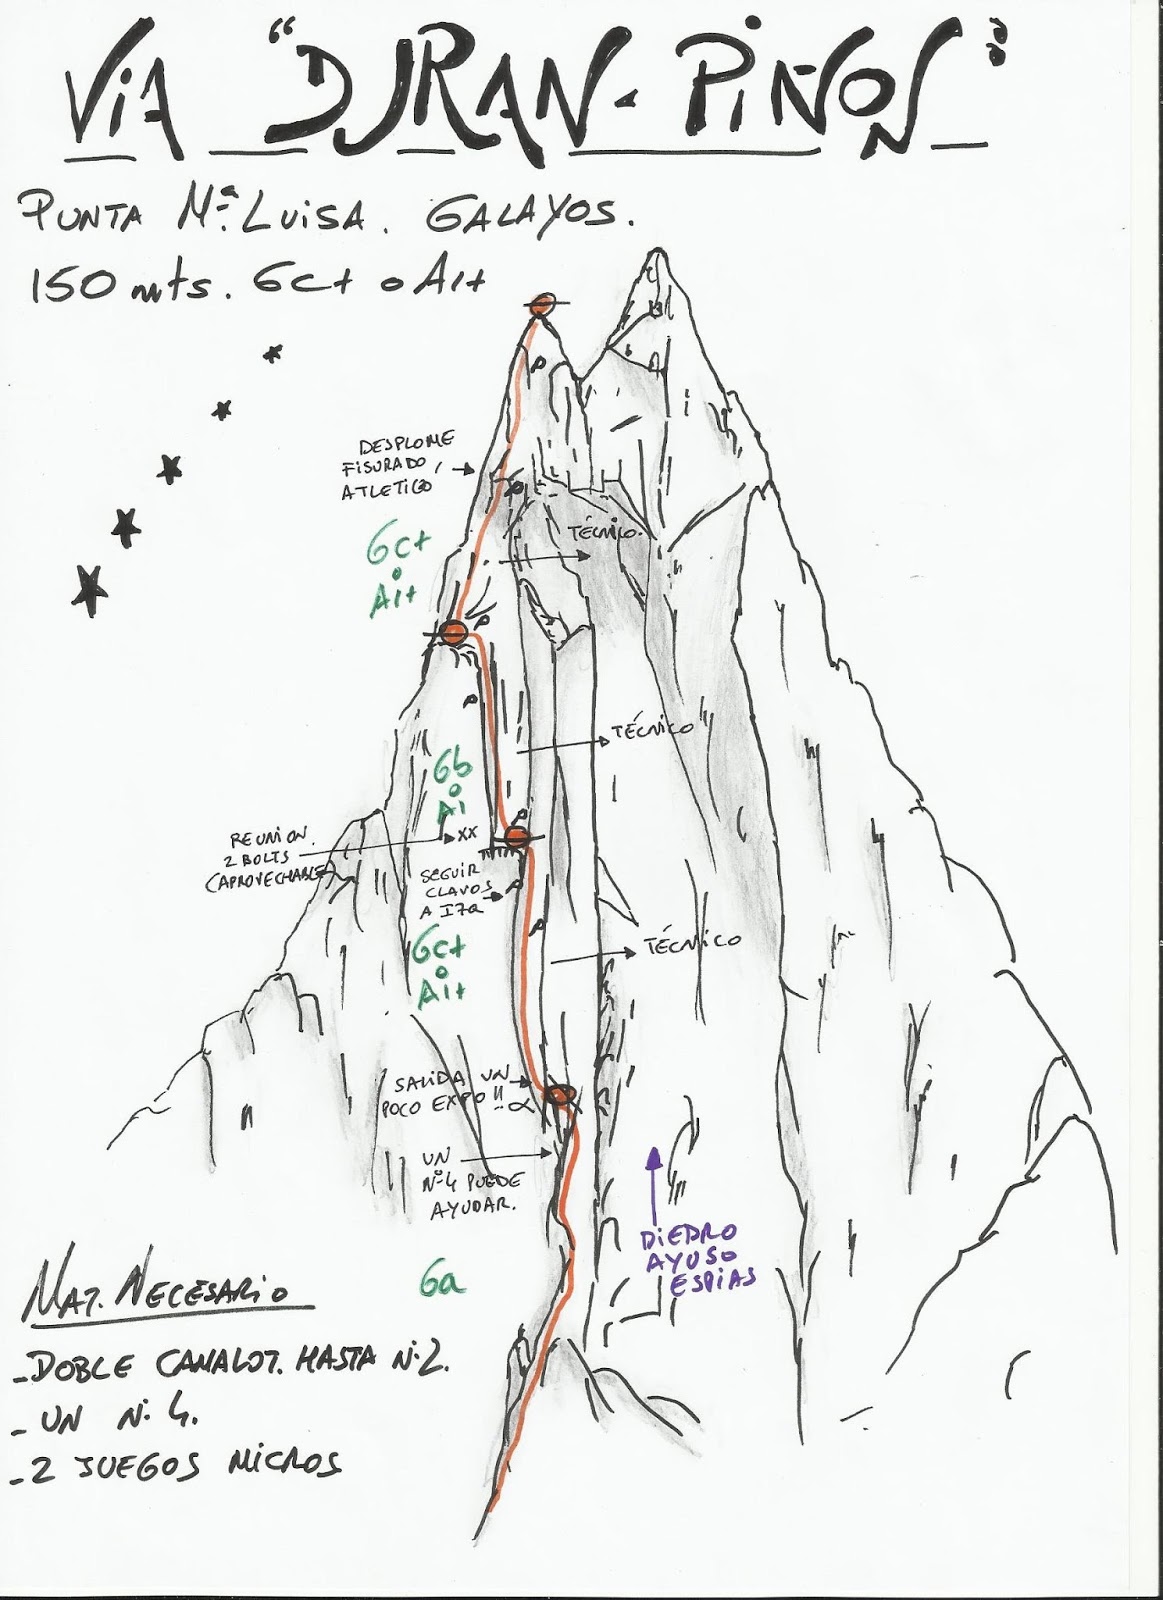 VIA "DURAN-PIÑON"
PUNTA Mª LUISA. GALAYOS.
150 mts. 6c+ o A1+
DESPLOME
FISURADO,
ATLETICO
TÉCNICO.
6c+
o
A1+
TÉCNICO
6b
o
A1
xx
REUNION.
2 BOLTS
(APROVECHABLE)
SEGUIR
CLAVOS
A IZQ
TÉCNICO
6c+
o
A1+
SALIDA UN
POCO EXPO!!
UN
Nº4 PUEDE
AYUDAR.
DIEDRO
AYUSO
ESPIAS
6a
MAT. NECESARIO
- DOBLE CAMALOT. HASTA N.2.
- UN N. 4.
- 2 JUEGOS MICROS